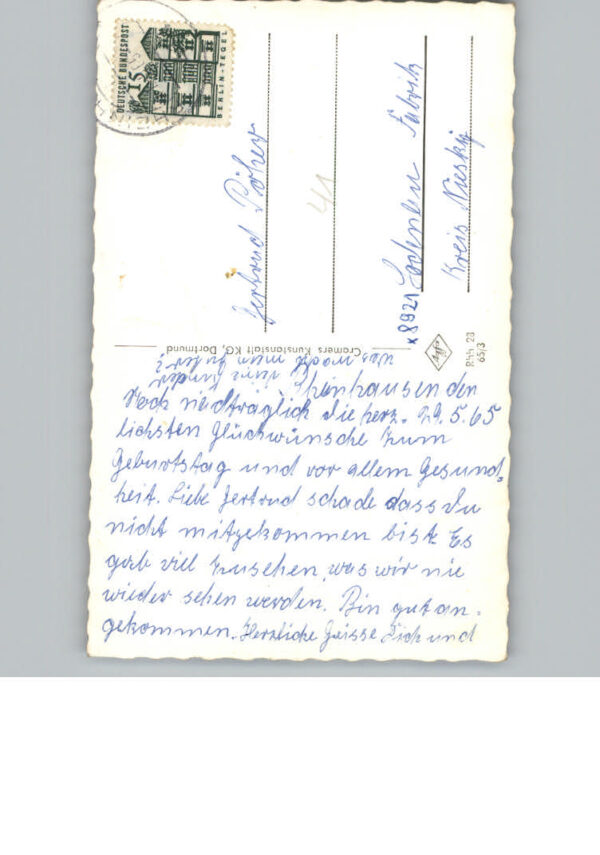 DEUTSCHE BUNDESPOST
15
BERLIN-TEGEL
Gertrud
41
x 8921
Fabrik
Kreis Niesky
Cramers Kunstanstalt KG, Dortmund
Rhh 28
65/3
was macht mein
Rheinhausen den
29.5.65
Noch nachträglich die herz-
lichsten Glückwünsche zum
Geburtstag und vor allem Gesund-
heit. Liebe Gertrud schade dass du
nicht mitgekommen bist Es
gab viel zusehen, was wir nie
wieder sehen werden. Bin gut an-
gekommen. Herzliche Grüsse Dich und